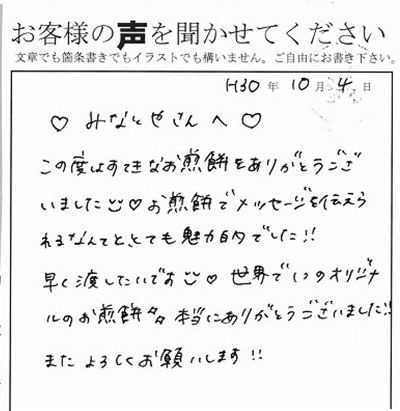 お客様の声を聞かせてください
文章でも箇条書きでもイラストでも構いません。ご自由にお書き下さい。
H30年10月4日
♡ みなとやさんへ ♡
この度はすてきなお煎餅をありがとうござ
いました☺♡お煎餅でメッセージを伝えら
れるなんてとても魅力的でした!!
早く渡したいです☺♡ 世界で1つのオリジナ
ルのお煎餅々 本当にありがとうございました!!
またよろしくお願いします!!